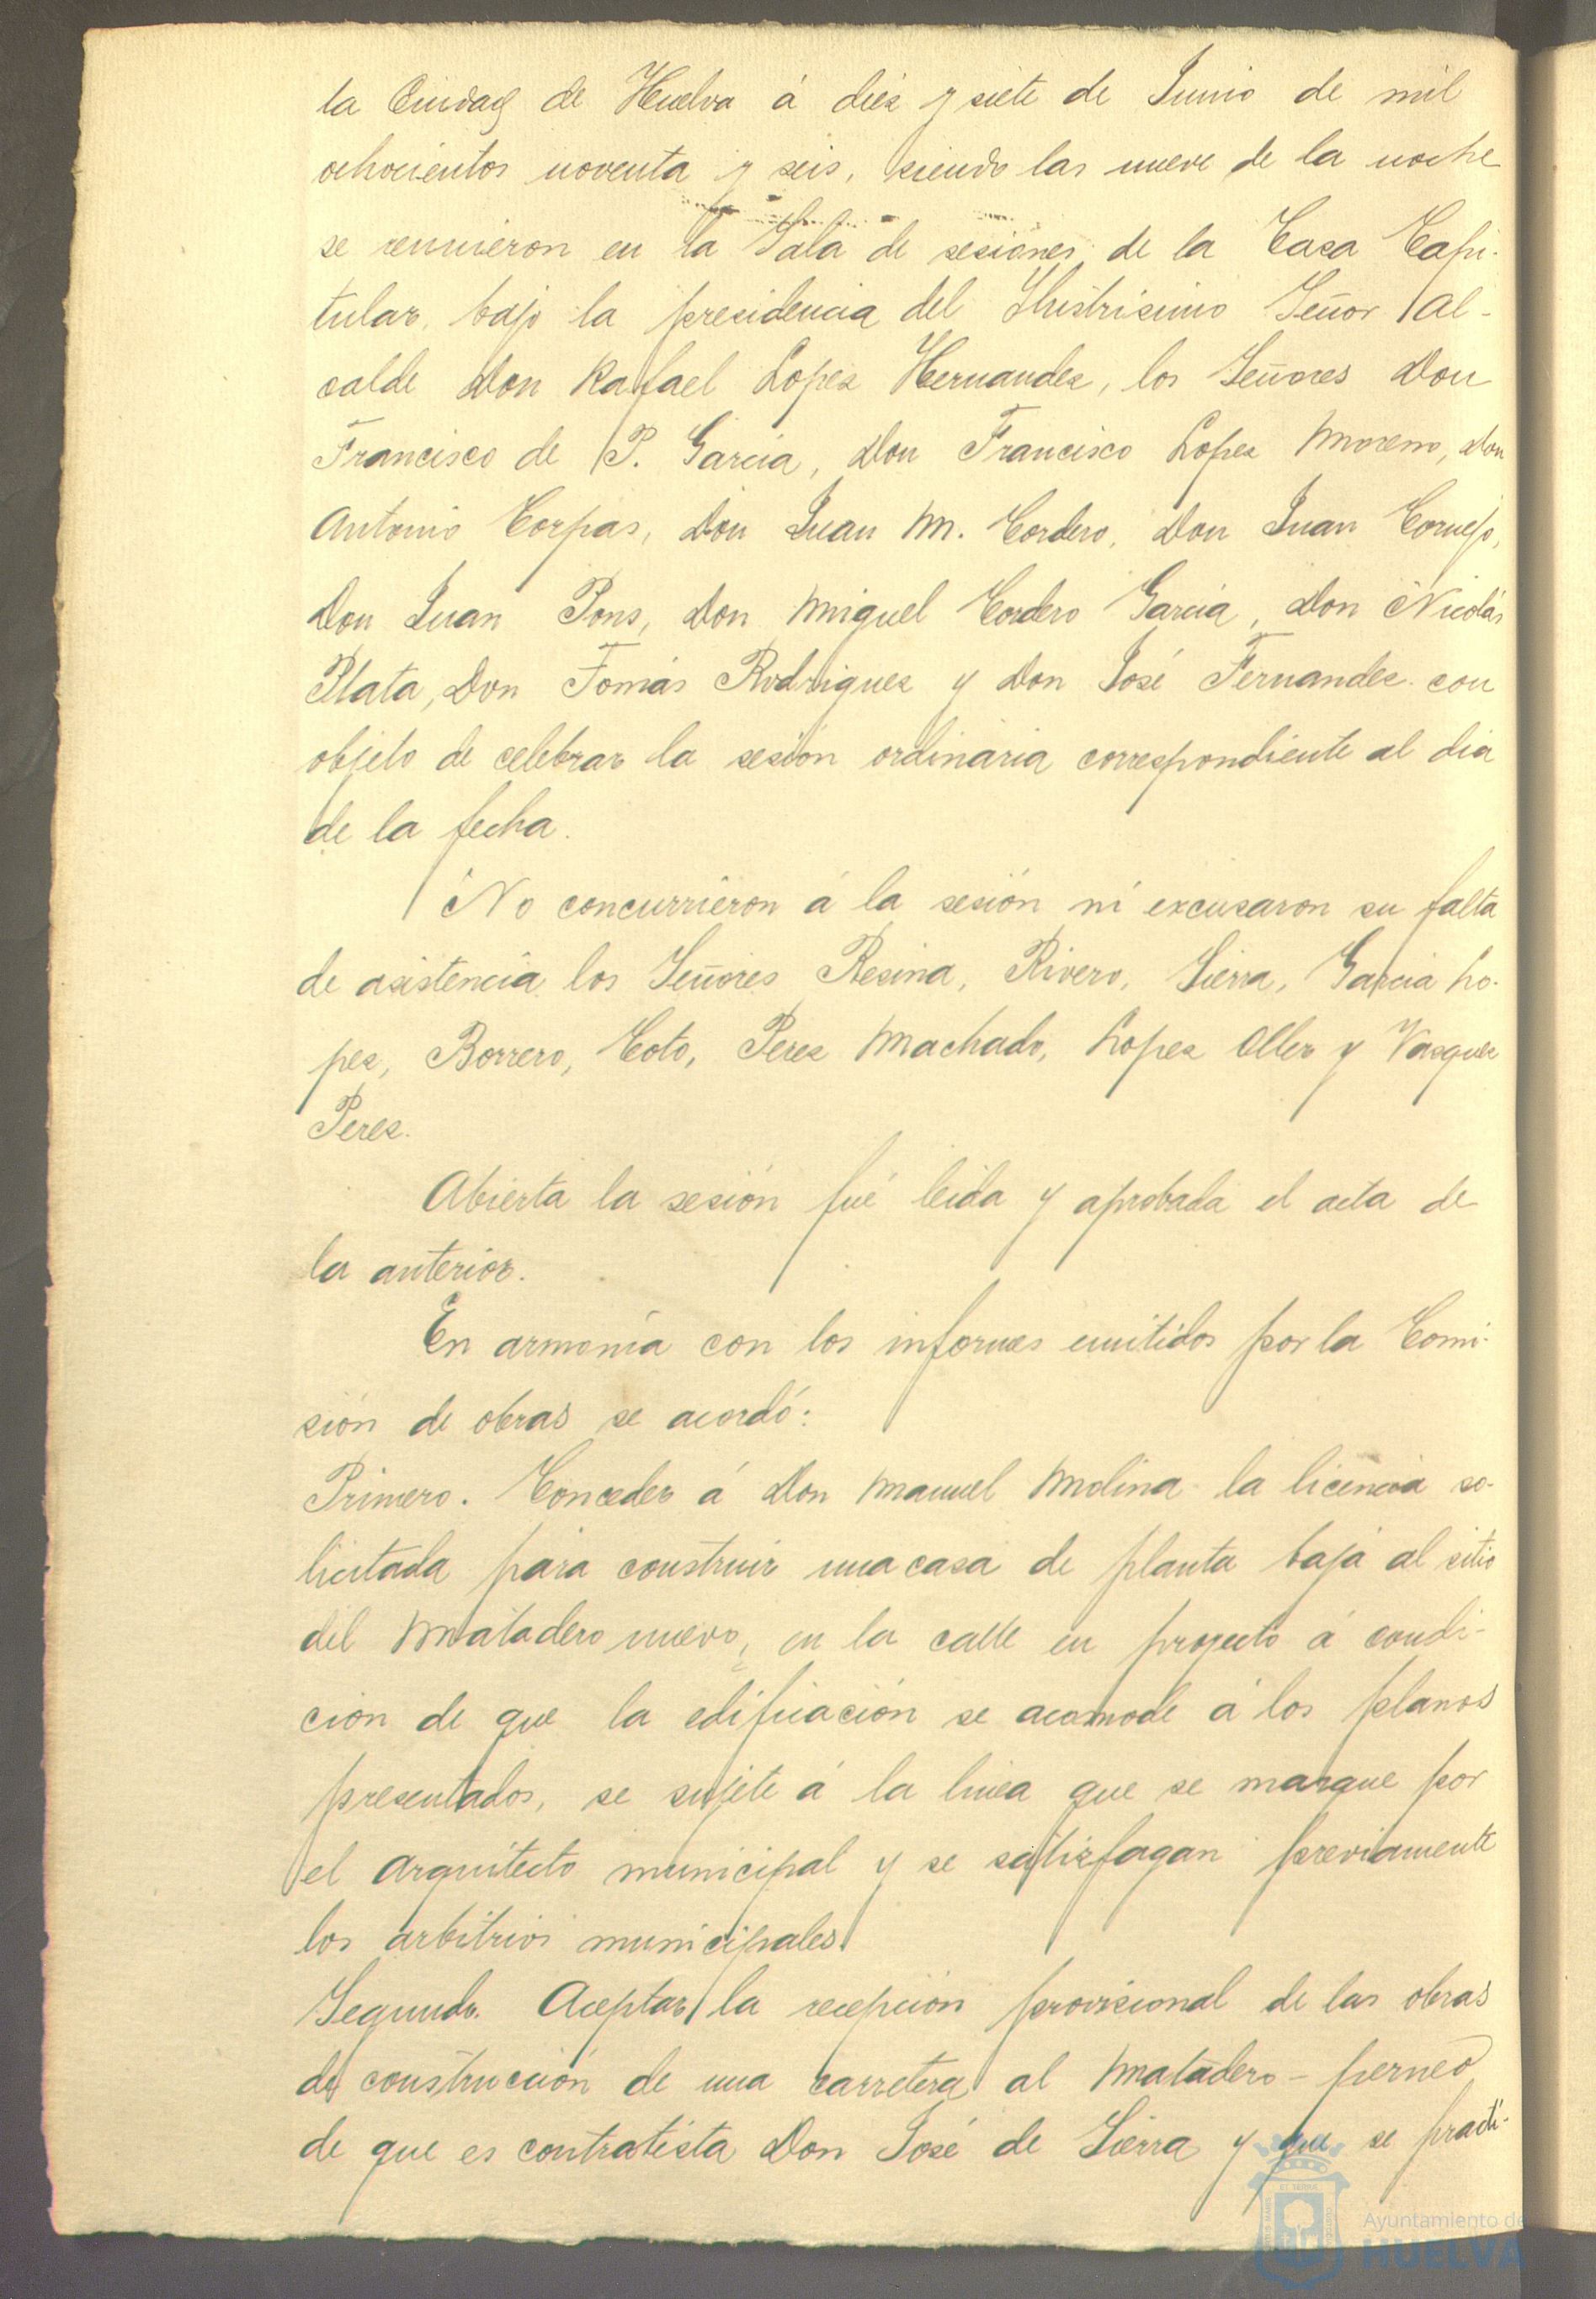 la Ciudad de Huelva á diéz y siete de Junio de mil
ochocientos noventa y seis, siendo las nueve de la noche
se reunieron en la Sala de sesiones de la Casa Capi-
tular, bajo la presidencia del Ilustrisimo Señor Al-
calde Don Rafael Lopez Hernandez, los Señores Don
Francisco de P. Garcia, Don Francisco Lopez Moreno, Don
Antonio Corpas, Don Juan M. Cordero, Don Juan Cornejo,
Don Juan Pons, Don Miguel Cordero Garcia, Don Nicolás
Plata, Don Tomás Rodriguez y Don José Fernandez con
objeto de celebrar la sesión ordinaria correspondiente al dia
de la fecha.
No concurrieron á la sesión ni excusaron su falta
de asistencia los Señores Resina, Rivero, Sierra, Garcia Lo-
pez, Borrero, Coto, Perez Machado, Lopez Oller y Vazquez
Perez.
Abierta la sesión fué leida y aprobada el acta de
la anterior.
En armonía con los informes emitidos por la Comi-
sión de obras se acordó:
Primero. Conceder á Don Manuel Molina la licencia so-
licitada para construir una casa de planta baja al sitio
del Matadero nuevo, en la calle en proyecto á condi-
cion de que la edificación se acomode á los planos
presentados, se sujete á la linea que se marque por
el Arquitecto municipal y se satisfagan previamente
los arbitrios municipales.
Segundo. Aceptar la recepción provisional de las obras
de construcción de una carretera al Matadero-perneo
de que es contratista Don José de Sierra y que se practi-
Ayuntamiento de
HUELVA